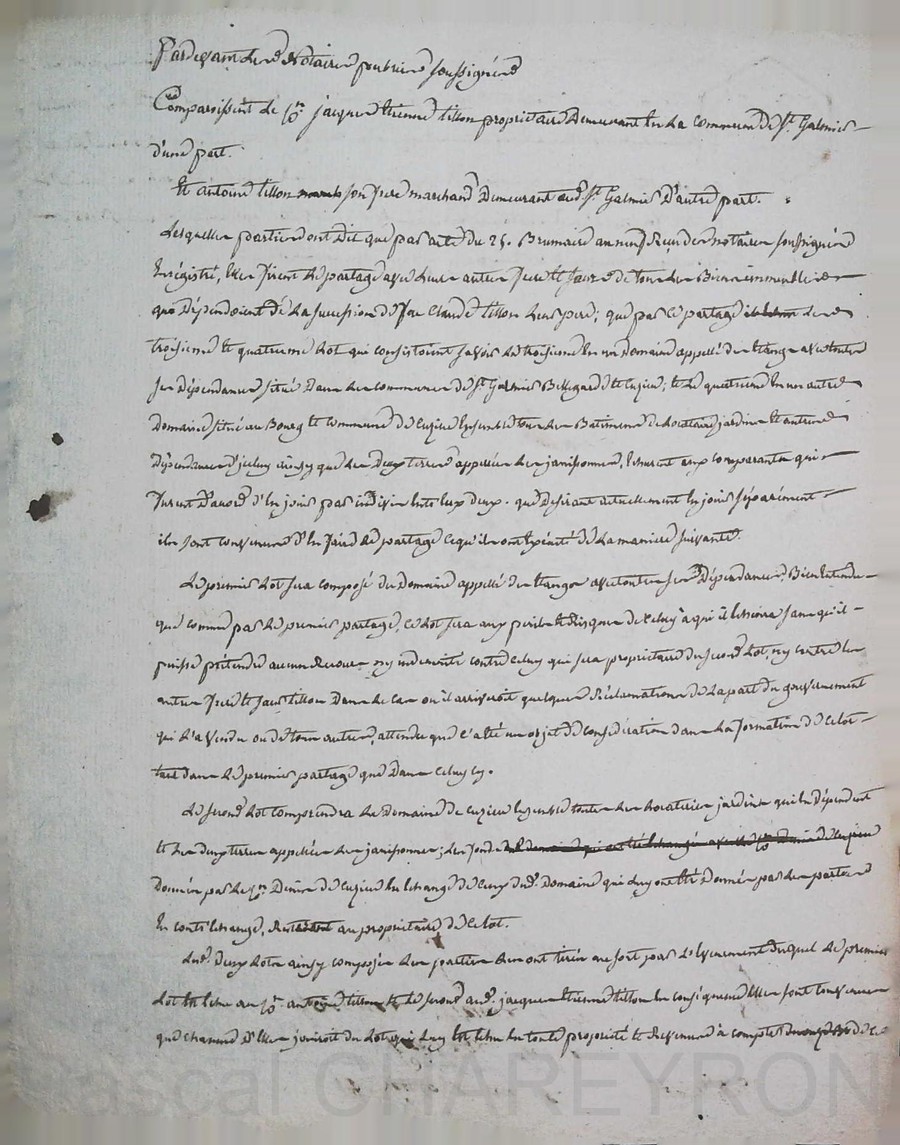 Pardevant les Notaires publics soussignés
Comparoissent le Sr. jacques Etienne tillon proprietaire Demeurant en la commune de St. Galmier
d'une part.
Et antoine tillon son frere marchand Demeurant aud. St. Galmier D'autre part.
Lesquelles parties ont Dit que par acte du 25. Brumaire an neuf Reçu des notaires soussignés
Enrégistré, Elles firent le partage avec leurs autres freres et soeurs de tous les Biens immeubles
qui Dépendoient de la succession de feu Claude tillon leur pere; que par ce partage les
troisieme et quatrieme lot qui consistoient savoir le troisieme en un Domaine appellé des Etangs avec toutes
ses Dépendances situé Dans les communes de St. Galmier Bellegarde et Cuzieu; et le quatrieme en un autre
Domaine situé au Bourg et commune de Cuzieu Ensemble tous les Batiments jardins et autres
Dépendances d'iceluy ainsy que les Deux terres appellées les janissonnes, Echurent aux comparants qui
furent D'accord d'en jouir par indivis Entre Eux deux. que Desirant actuellement en jouir séparément
ils sont convenus d'en faire le partage Ce qu'ils ont Exécuté De la maniere suivante.
Le premier lot sera composé du Domaine appellé des Etangs avec toutes ses Dépendances, Bien Entendu
que comme par le premier partage, ce lot sera aux perils et Risques de Celuy à qui il Echoira sans qu'il
puisse prétendre aucun Recours ny indemnité contre Celuy qui sera proprietaire du second lot, ny contre les
autres freres et soeurs tillon Dans le Cas ou il arriveroit quelques Réclamations De la part du gouvernement
qui l'a vendu ou de tous autres, attendu que c'a été un objet de considération dans la formation de ce lot
tant dans le premier partage que Dans Celuy cy.
Le second lot comprendra le Domaine de Cuzieu Ensemble toutes les jardins qui En Dépendent
et les deux terres appellées les janissonnes; les fonds
Donnés par le Sr. Denis de Cuzieu En Echange de Ceux dud. Domaine qui luy ont Eté Donnés par les parties
En contr'Echange, au proprietaire de ce lot.
Lesd. Deux lots ainsy composés les parties les ont tirés au sort par l'Evenement Duquel le premier
lot Est Echu au Sr. antoine tillon Et le second aud. jacques Etienne tillon En conséquence Elles sont convenues
que chacune d'Elles jouiroit du lot qui luy Est Echu En toute propriété et Revenus à compter de ce
Pascal CHAREYRON